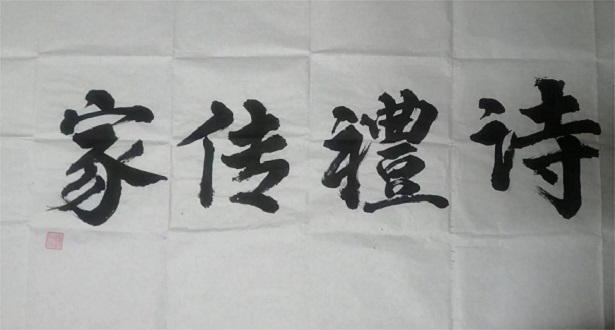 诗禮传家